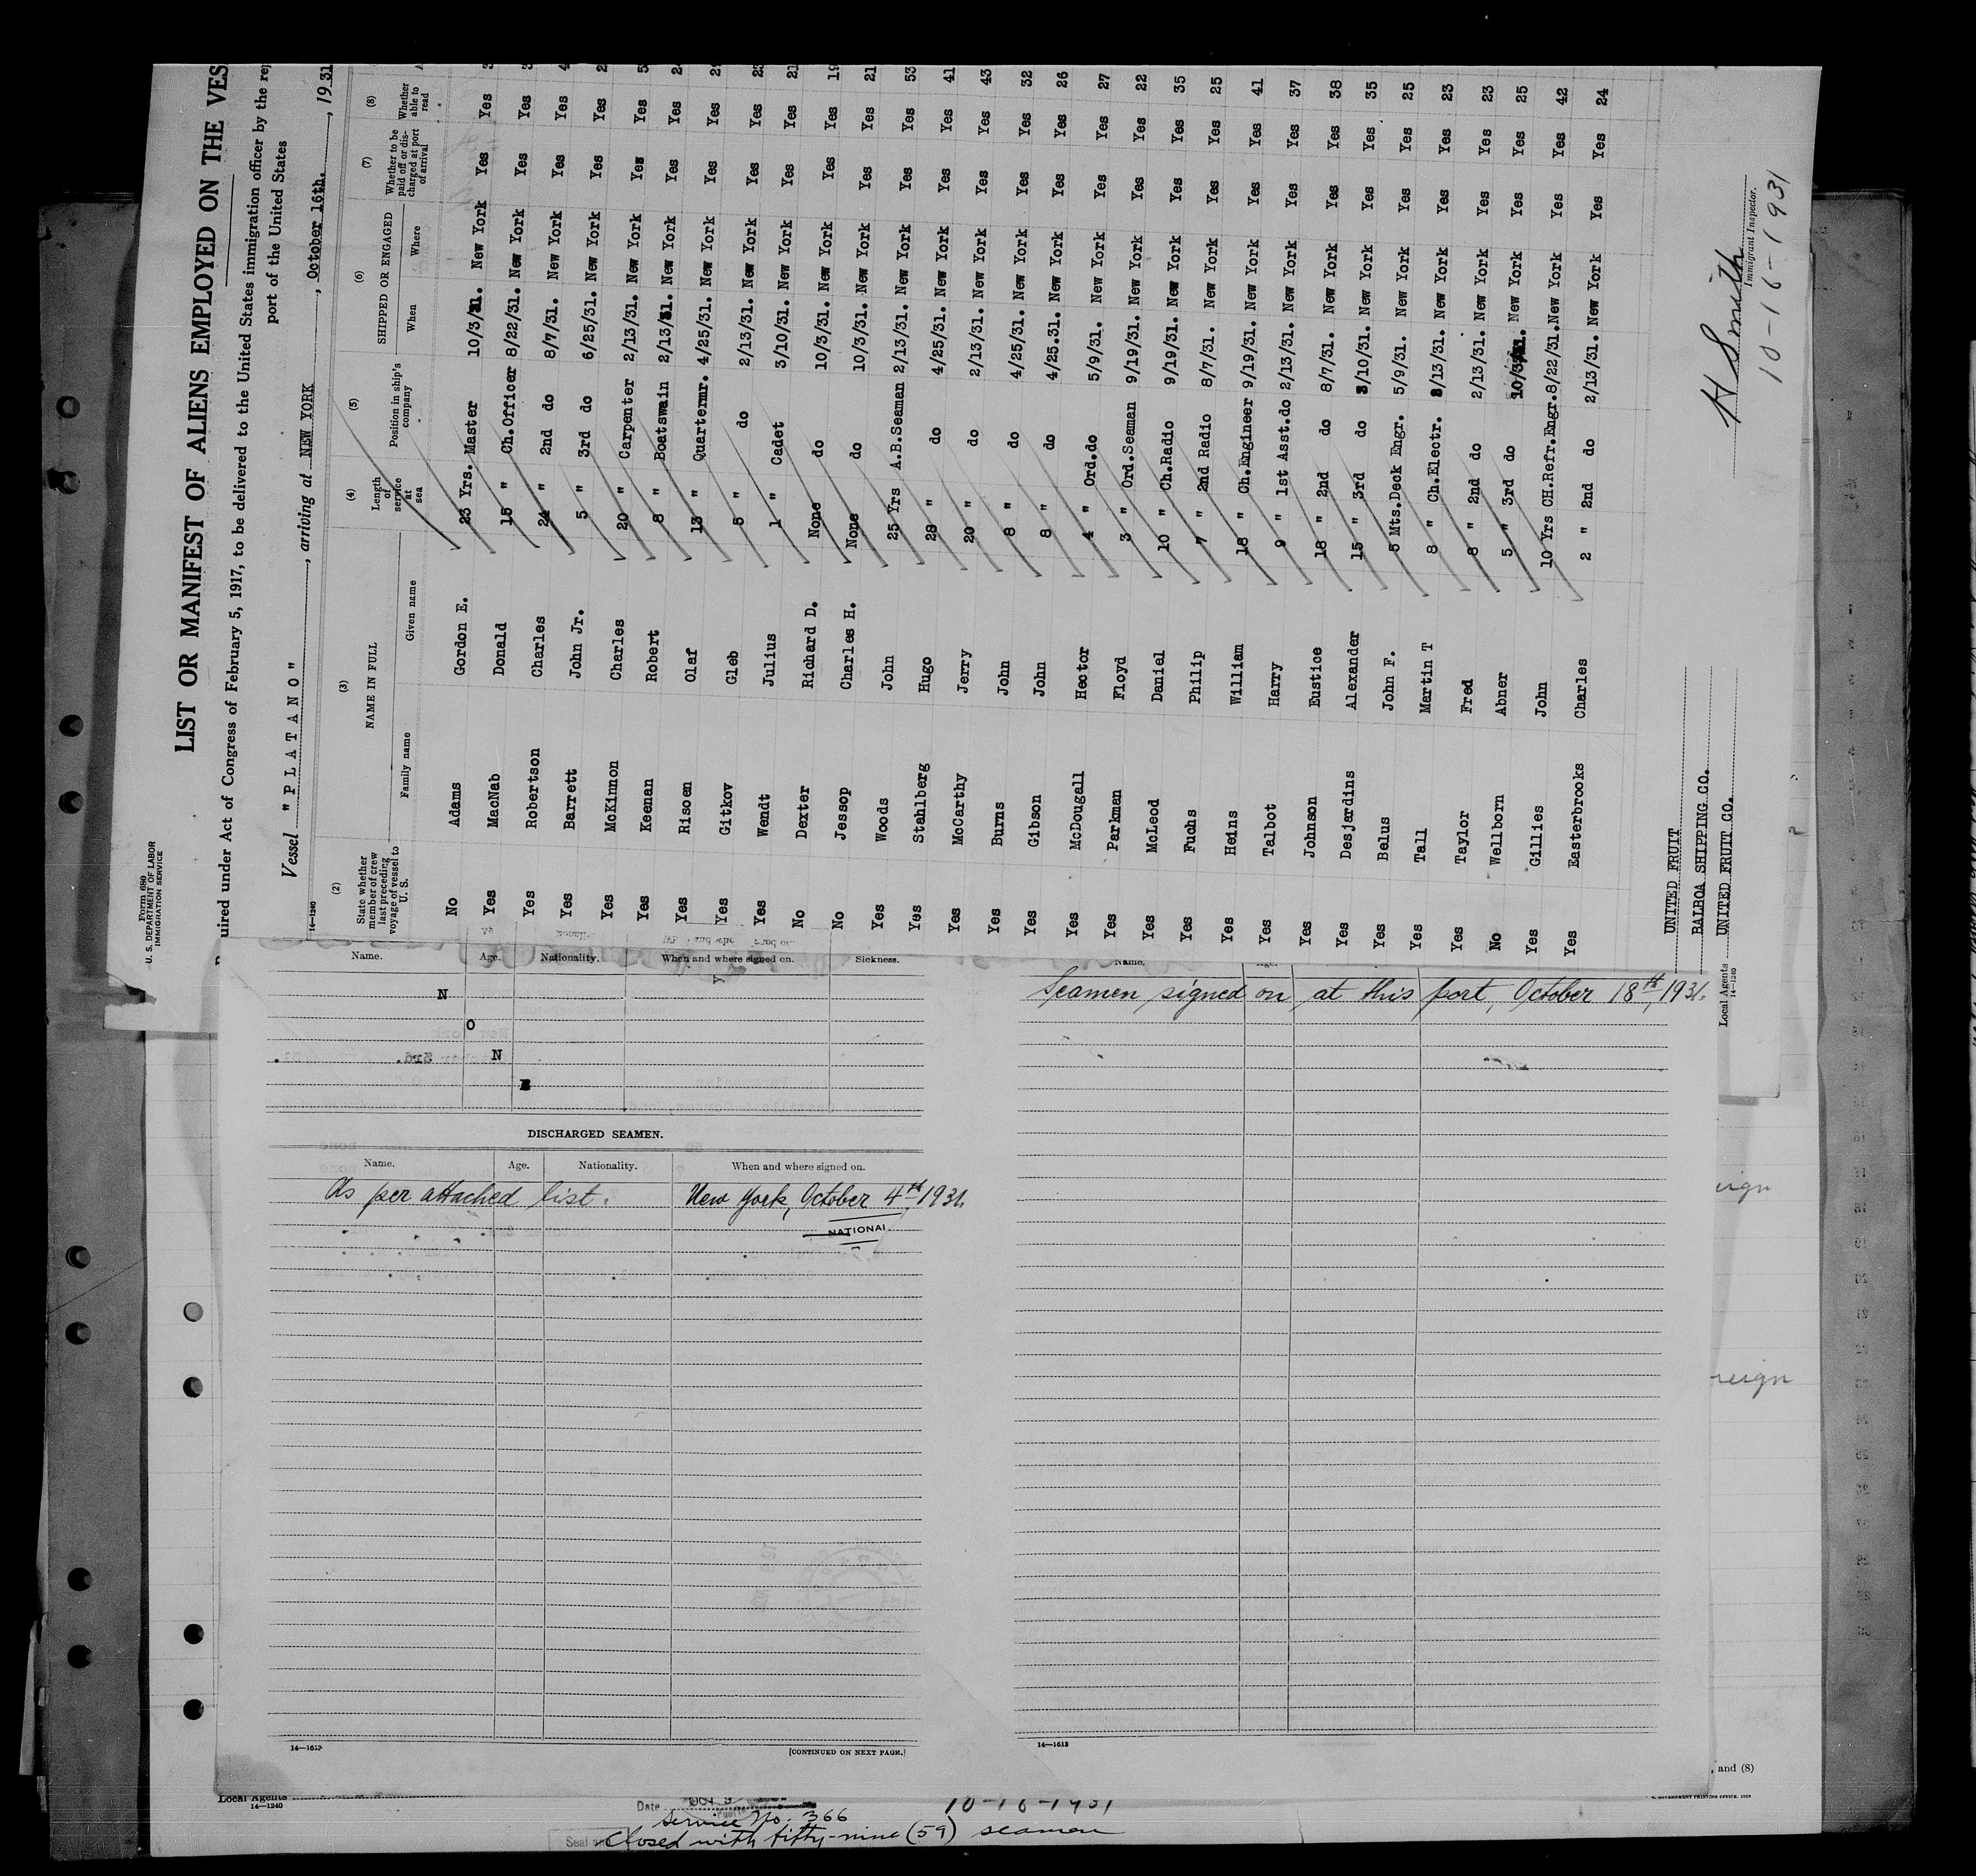 Form 680
U. S. DEPARTMENT OF LABOR
IMMIGRATION SERVICE
LIST OR MANIFEST OF ALIENS EMPLOYED ON THE VES
uired under Act of Congress of February 5, 1917, to be delivered to the United States immigration officer by the rep
port of the United States
Vessel "PLATANO", arriving at NEW YORK, October 16th., 1931
14—1240
(2) (3) (4) (5) (6) (7) (8)
State whether member of crew last preceding voyage of vessel to U. S. NAME IN FULL Length of service at sea Position in ship's company SHIPPED OR ENGAGED Whether to be paid off or discharged at port of arrival Whether able to read
Family name Given name When Where
No Adams Gordon E. 23 Yrs. Master 10/3/31. New York Yes Yes
Yes MacNab Donald 15 " Ch.Officer 8/22/31. New York Yes Yes
Yes Robertson Charles 24 " 2nd do 8/7/31. New York Yes Yes
Yes Barrett John Jr. 5 " 3rd do 6/25/31. New York Yes Yes
Yes McKinnon Charles 20 " Carpenter 2/13/31. New York Yes Yes
Yes Keenan Robert 8 " Boatswain 2/13/31. New York Yes Yes
Yes Risoen Olaf 13 " Quartermr. 4/25/31. New York Yes Yes
Yes Gitkov Gleb 5 " do 2/13/31. New York Yes Yes
Yes Wendt Julius 1 " Cadet 3/10/31. New York Yes Yes 21
No Dexter Richard D. None do 10/3/31. New York Yes Yes 19
No Jessop Charles H. None do 10/3/31. New York Yes Yes 21
Yes Woods John 25 Yrs A.B.Seaman 2/13/31. New York Yes Yes 53
Yes Stahlberg Hugo 28 " do 4/25/31. New York Yes Yes 41
Yes McCarthy Jerry 20 " do 2/13/31. New York Yes Yes 43
Yes Burns John 8 " do 4/25/31. New York Yes Yes 32
Yes Gibson John 8 " do 4/25.31. New York Yes Yes 26
Yes McDougall Hector 4 " Ord.do 5/9/31. New York Yes Yes 27
Yes Parkman Floyd 3 " Ord.Seaman 9/19/31. New York Yes Yes 22
Yes McLeod Daniel 10 " Ch.Radio 9/19/31. New York Yes Yes 35
Yes Fuchs Philip 7 " 2nd Radio 8/7/31. New York Yes Yes 25
Yes Heins William 18 " Ch.Engineer 9/19/31. New York Yes Yes 41
Yes Talbot Harry 9 " 1st Asst.do 2/13/31. New York Yes Yes 37
Yes Johnson Eustice 18 " 2nd do 8/7/31. New York Yes Yes 38
Yes Desjardins Alexander 15 " 3rd do 3/10/31. New York Yes Yes 35
Yes Belus John F. 5 Mts. Deck Engr. 5/9/31. New York Yes Yes 25
Yes Tall Martin T 8 " Ch.Electr. 2/13/31. New York Yes Yes 23
Yes Taylor Fred 8 " 2nd do 2/13/31. New York Yes Yes 23
No Wellborn Abner 5 " 3rd do 10/3/31. New York Yes Yes 25
Yes Gillies John 10 Yrs CH.Refr.Engr. 8/22/31. New York Yes Yes 42
Yes Easterbrooks Charles 2 " 2nd do 2/13/31. New York Yes Yes 24
UNITED FRUIT
BALBOA SHIPPING CO.
Local Agents UNITED FRUIT CO.
14—1240
H Smith
Immigrant Inspector.
10-16-1931
Name. Age. Nationality. When and where signed on. Sickness.
N
O
N
DISCHARGED SEAMEN.
Name. Age. Nationality. When and where signed on.
As per attached list. New York, October 4th, 1931.
NATIONAL
14—1613
[CONTINUED ON NEXT PAGE.]
Name.
Seamen signed on at this port, October 18th, 1931.
14—1613
eign
reign
, and (8)
Local Agents
14—1240
Date OCT 9
10-16-1931
Service No. 366
Closed with fifty-nine (59) seamen